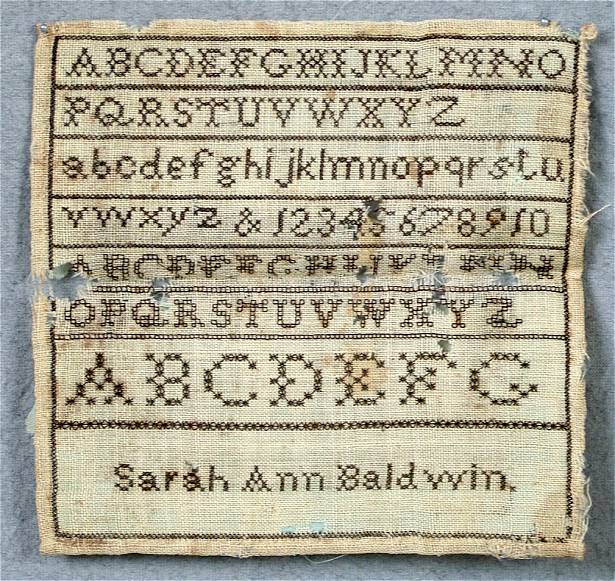 ABCDEFGHIJKLMNO
PQRSTUVWXYZ
abcdefghijklmnopqrstu
vwxyz & 12345 678910
ABCDEFGHIJKLMN
OPQRSTUVWXYZ
ABCDEFG
Sarah Ann Baldwin.